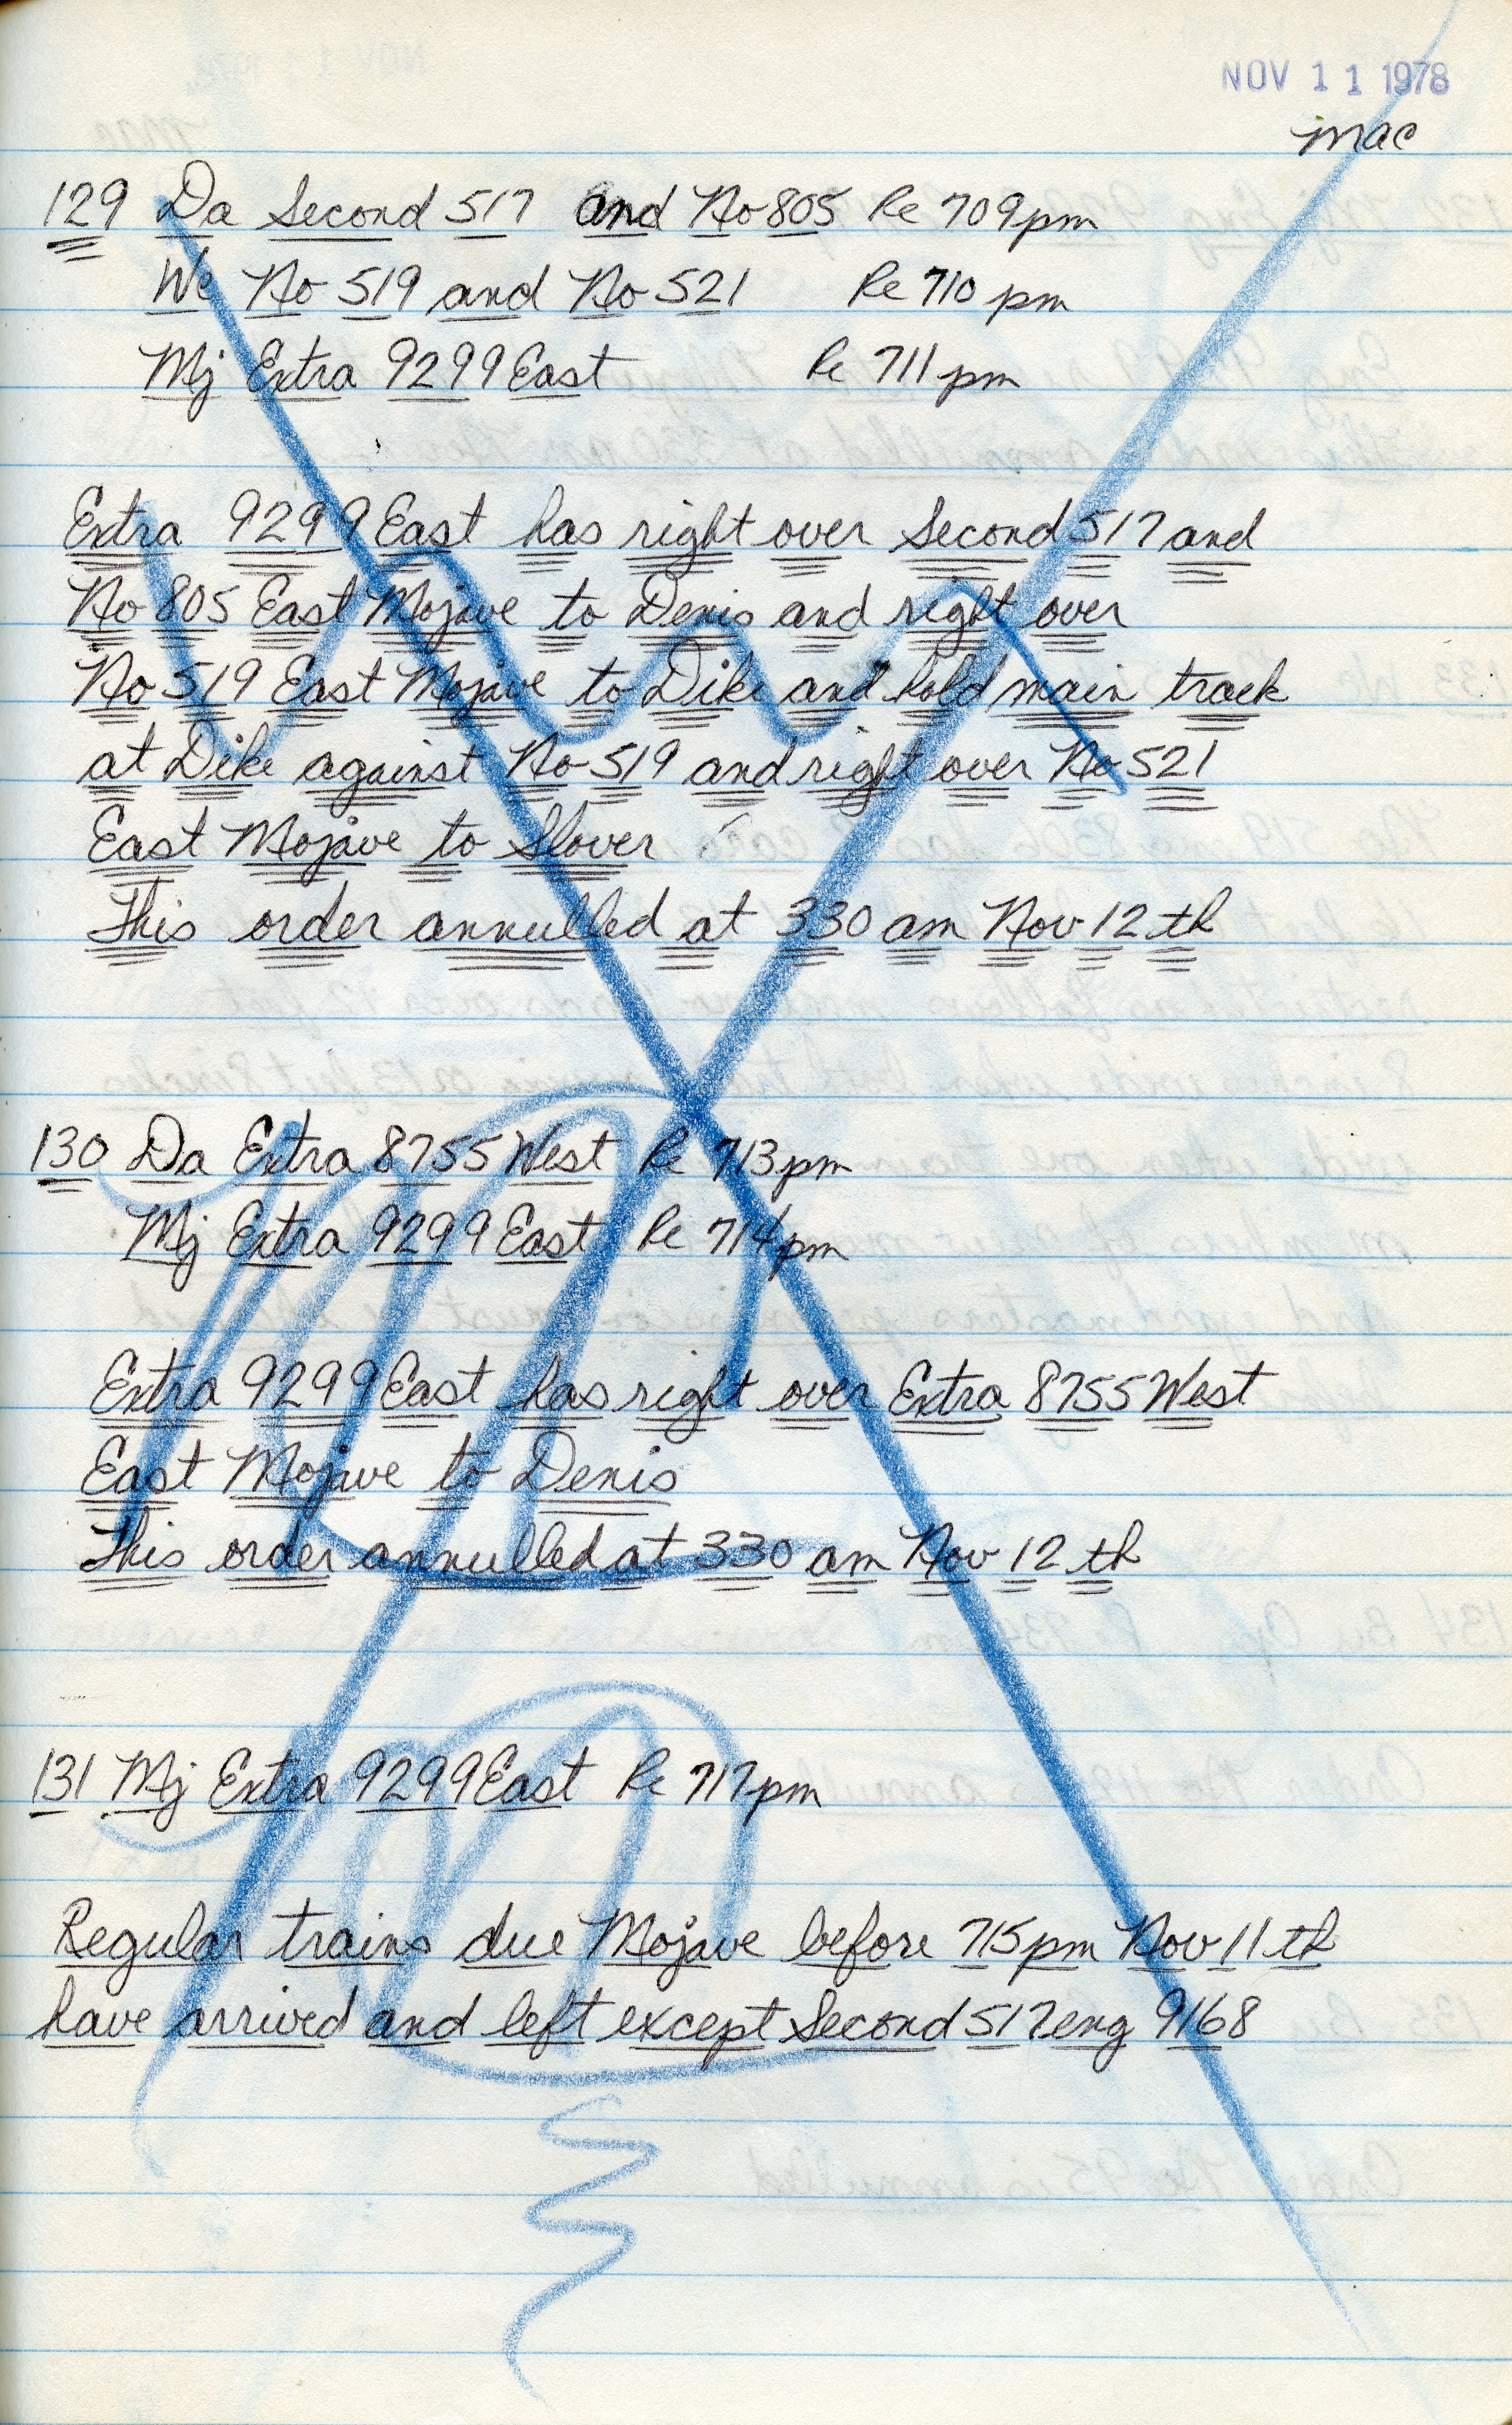 NOV 11 1978
mac
129 Da Second 517 and No 805 Re 709pm
We No 519 and No 521 Re 710 pm
Mj Extra 9299 East Re 711 pm
Extra 9299 East has right over Second 517 and
No 805 East Mojave to Denis and right over
No 519 East Mojave to Dike and hold main track
at Dike against No 519 and right over No 521
East Mojave to Slover
This order annulled at 330 am Nov 12 th
130 Da Extra 8755 West Re 713pm
Mj Extra 9299 East Re 714pm
Extra 9299 East has right over Extra 8755 West
East Mojave to Denis
This order annulled at 330 am Nov 12 th
131 Mj Extra 9299 East Re 717pm
Regular trains due Mojave before 715pm Nov 11 th
have arrived and left except Second 517 eng 9168